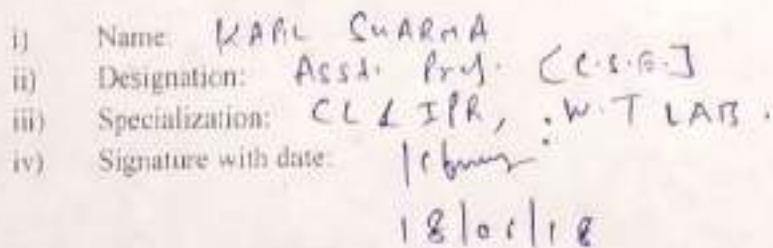 i) Name: KAPIL SHARMA
ii) Designation: Asst. Prof. [C.S.E.]
iii) Specialization: CL & IPR, W.T LAB.
iv) Signature with date:
18/01/18